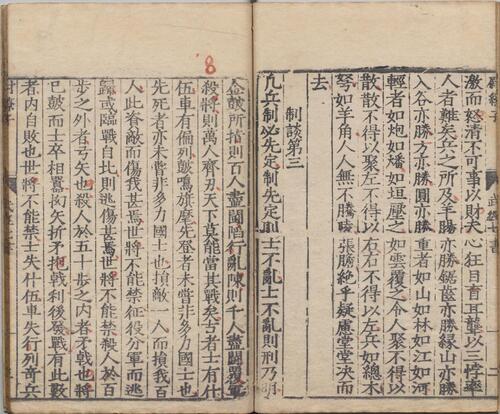 尉繚子 武經七書 二
激而怒清不可事以財夫心狂目盲耳聾以三悖率
人者難矣兵之所及羊腸亦勝鋸齒亦勝緣山亦勝
入谷亦勝方亦勝圓亦勝重者如山如林如江如河
輕者如炮如燔如垣壓之如雲覆之令人聚不得以
散散不得以聚左不得以右右不得以左兵如總木
弩如羊角人人無不騰陵張勝絶乎疑慮堂堂決而
去
制談第三
凡兵制必先定制先定則士不亂士不亂則刑乃明
8
金鼓所指則百人盡鬭陷行亂陳則千人盡鬭覆軍
殺將則萬人齊刃天下莫能當其戰矣古者士有什
伍車有偏列鼓鳴旗麾先登者未嘗非多力國士也
先死者亦未嘗非多力國士也損敵一人而損我百
人此資敵而傷我甚焉世將不能禁征役分軍而逃
歸或臨戰自北則逃傷甚焉世將不能禁殺人於百
步之外者弓矢也殺人於五十步之内者矛戟也將
已鼓而士卒相囂拗矢折矛抱戟利後發戰有此數
者内自敗也世將不能禁士失什伍車失行列奇兵